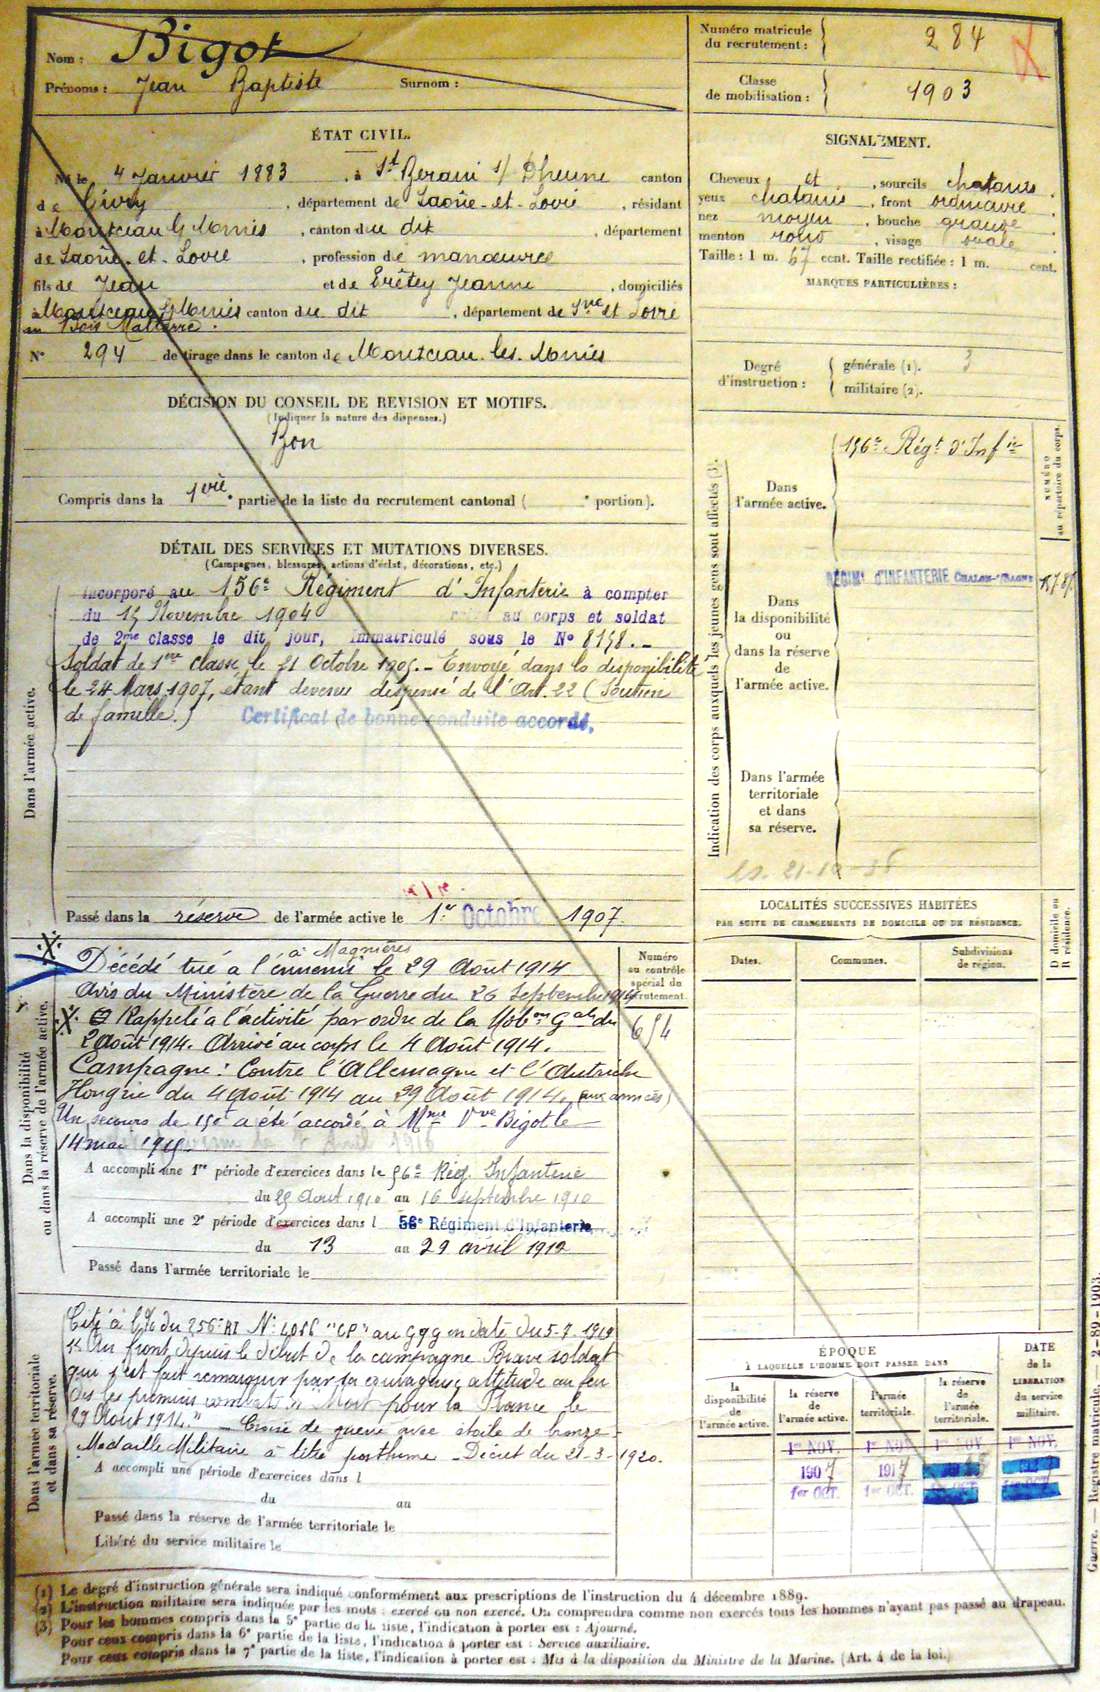 Nom : Bigot
Prénoms : Jean Baptiste Surnom :
Numéro matricule du recrutement : 284
Classe de mobilisation : 1903
ÉTAT CIVIL.
Né le 4 Janvier 1883, à St Berain s/ Dheune canton
de Givry, département de Saône-et-Loire, résidant
à Montceau les Mines, canton du dit, département
de Saône-et-Loire, profession de manœuvre
fils de Jean et de Trêtey Jeanne, domiciliés
à Montceau les Mines canton du dit, département de Sne et Loire
au Bois Malterre.
N° 294 de tirage dans le canton de Montceau-les-Mines
SIGNALEMENT.
Cheveux et, sourcils chatains
yeux chatains, front ordinaire
nez moyen, bouche grande
menton rond, visage ovale
Taille : 1 m. 67 cent. Taille rectifiée : 1 m. cent.
MARQUES PARTICULIÈRES :
Degré d'instruction : générale (1). 3
militaire (2).
DÉCISION DU CONSEIL DE REVISION ET MOTIFS.
(Indiquer la nature des dispenses.)
Bon
Compris dans la 1ère partie de la liste du recrutement cantonal ( e portion).
DÉTAIL DES SERVICES ET MUTATIONS DIVERSES.
(Campagnes, blessures, actions d'éclat, décorations, etc.)
Dans l'armée active.
Incorporé au 156e Régiment d'Infanterie à compter
du 15 Novembre 1904 au corps et soldat
de 2me classe le dit jour, immatriculé sous le N° 8158.-
Soldat de 1ère classe le 21 Octobre 1905.- Envoyé dans la disponibilité
le 24 Mars 1907, étant devenu dispensé de l'Art. 22 (Soutien
de famille.) Certificat de bonne conduite accordé.
Passé dans la réserve de l'armée active le 1er Octobre 1907.
Indication des corps auxquels les jeunes gens sont affectés (3).
NUMÉRO au répertoire du corps.
Dans l'armée active. 156e Régt d'Infie
RÉGIMt d'INFANTERIE CHALON-s/SAONE
Dans la disponibilité ou dans la réserve de l'armée active.
Dans l'armée territoriale et dans sa réserve.
21-10-38
Dans la disponibilité ou dans la réserve de l'armée active.
à Magnières
Décédé tué à l'ennemi le 29 Août 1914
Avis du Ministère de la Guerre du 26 Septembre 1914
Rappelé à l'activité par ordre de la Mobon Gale du
2 Août 1914. Arrivé au corps le 4 Août 1914.
Campagne : Contre l'Allemagne et l'Autriche
Hongrie du 4 Août 1914 au 29 Août 1914. (aux armées)
Un secours de 150f a été accordé à Mme Vve Bigot le
14 mai 1915.
Numéro au contrôle spécial du recrutement.
654
A accompli une 1re période d'exercices dans le 56e Rég. Infanterie
du 25 Août 1910 au 16 septembre 1910
A accompli une 2e période d'exercices dans l 56e Régiment d'Infanterie
du 13 au 29 avril 1912
Passé dans l'armée territoriale le
LOCALITÉS SUCCESSIVES HABITÉES
PAR SUITE DE CHANGEMENTS DE DOMICILE OU DE RÉSIDENCE.
Dates. Communes. Subdivisions de région. D domicile ou R résidence.
Dans l'armée territoriale et dans sa réserve.
Cité à l'% du 256e RI N° 4086 "CP" au GQG en date du 5-7-1919
Au front depuis le début de la campagne Brave soldat
qui s'est fait remarquer par sa courageuse attitude au feu
dès les premiers combats. Mort pour la France le
29 Août 1914." Croix de guerre avec étoile de bronze-
Médaille Militaire à titre posthume - Décret du 21-3-1920.
A accompli une période d'exercices dans l
du au
Passé dans la réserve de l'armée territoriale le
Libéré du service militaire le
ÉPOQUE
À LAQUELLE L'HOMME DOIT PASSER DANS
DATE de la LIBÉRATION du service militaire.
la disponibilité de l'armée active. la réserve de l'armée active. l'armée territoriale. la réserve de l'armée territoriale.
1er NOV. 1er NOV. 1er NOV. 1er NOV.
1907 1917
1er OCT. 1er OCT.
(1) Le degré d'instruction générale sera indiqué conformément aux prescriptions de l'instruction du 4 décembre 1889.
(2) L'instruction militaire sera indiquée par les mots : exercé ou non exercé. On comprendra comme non exercés tous les hommes n'ayant pas passé au drapeau.
(3) Pour les hommes compris dans la 5e partie de la liste, l'indication à porter est : Ajourné.
Pour ceux compris dans la 6e partie de la liste, l'indication à porter est : Service auxiliaire.
Pour ceux compris dans la 7e partie de la liste, l'indication à porter est : Mis à la disposition du Ministre de la Marine. (Art. 4 de la loi.)
Guerre. — Registre matricule. — 2-89-1903.